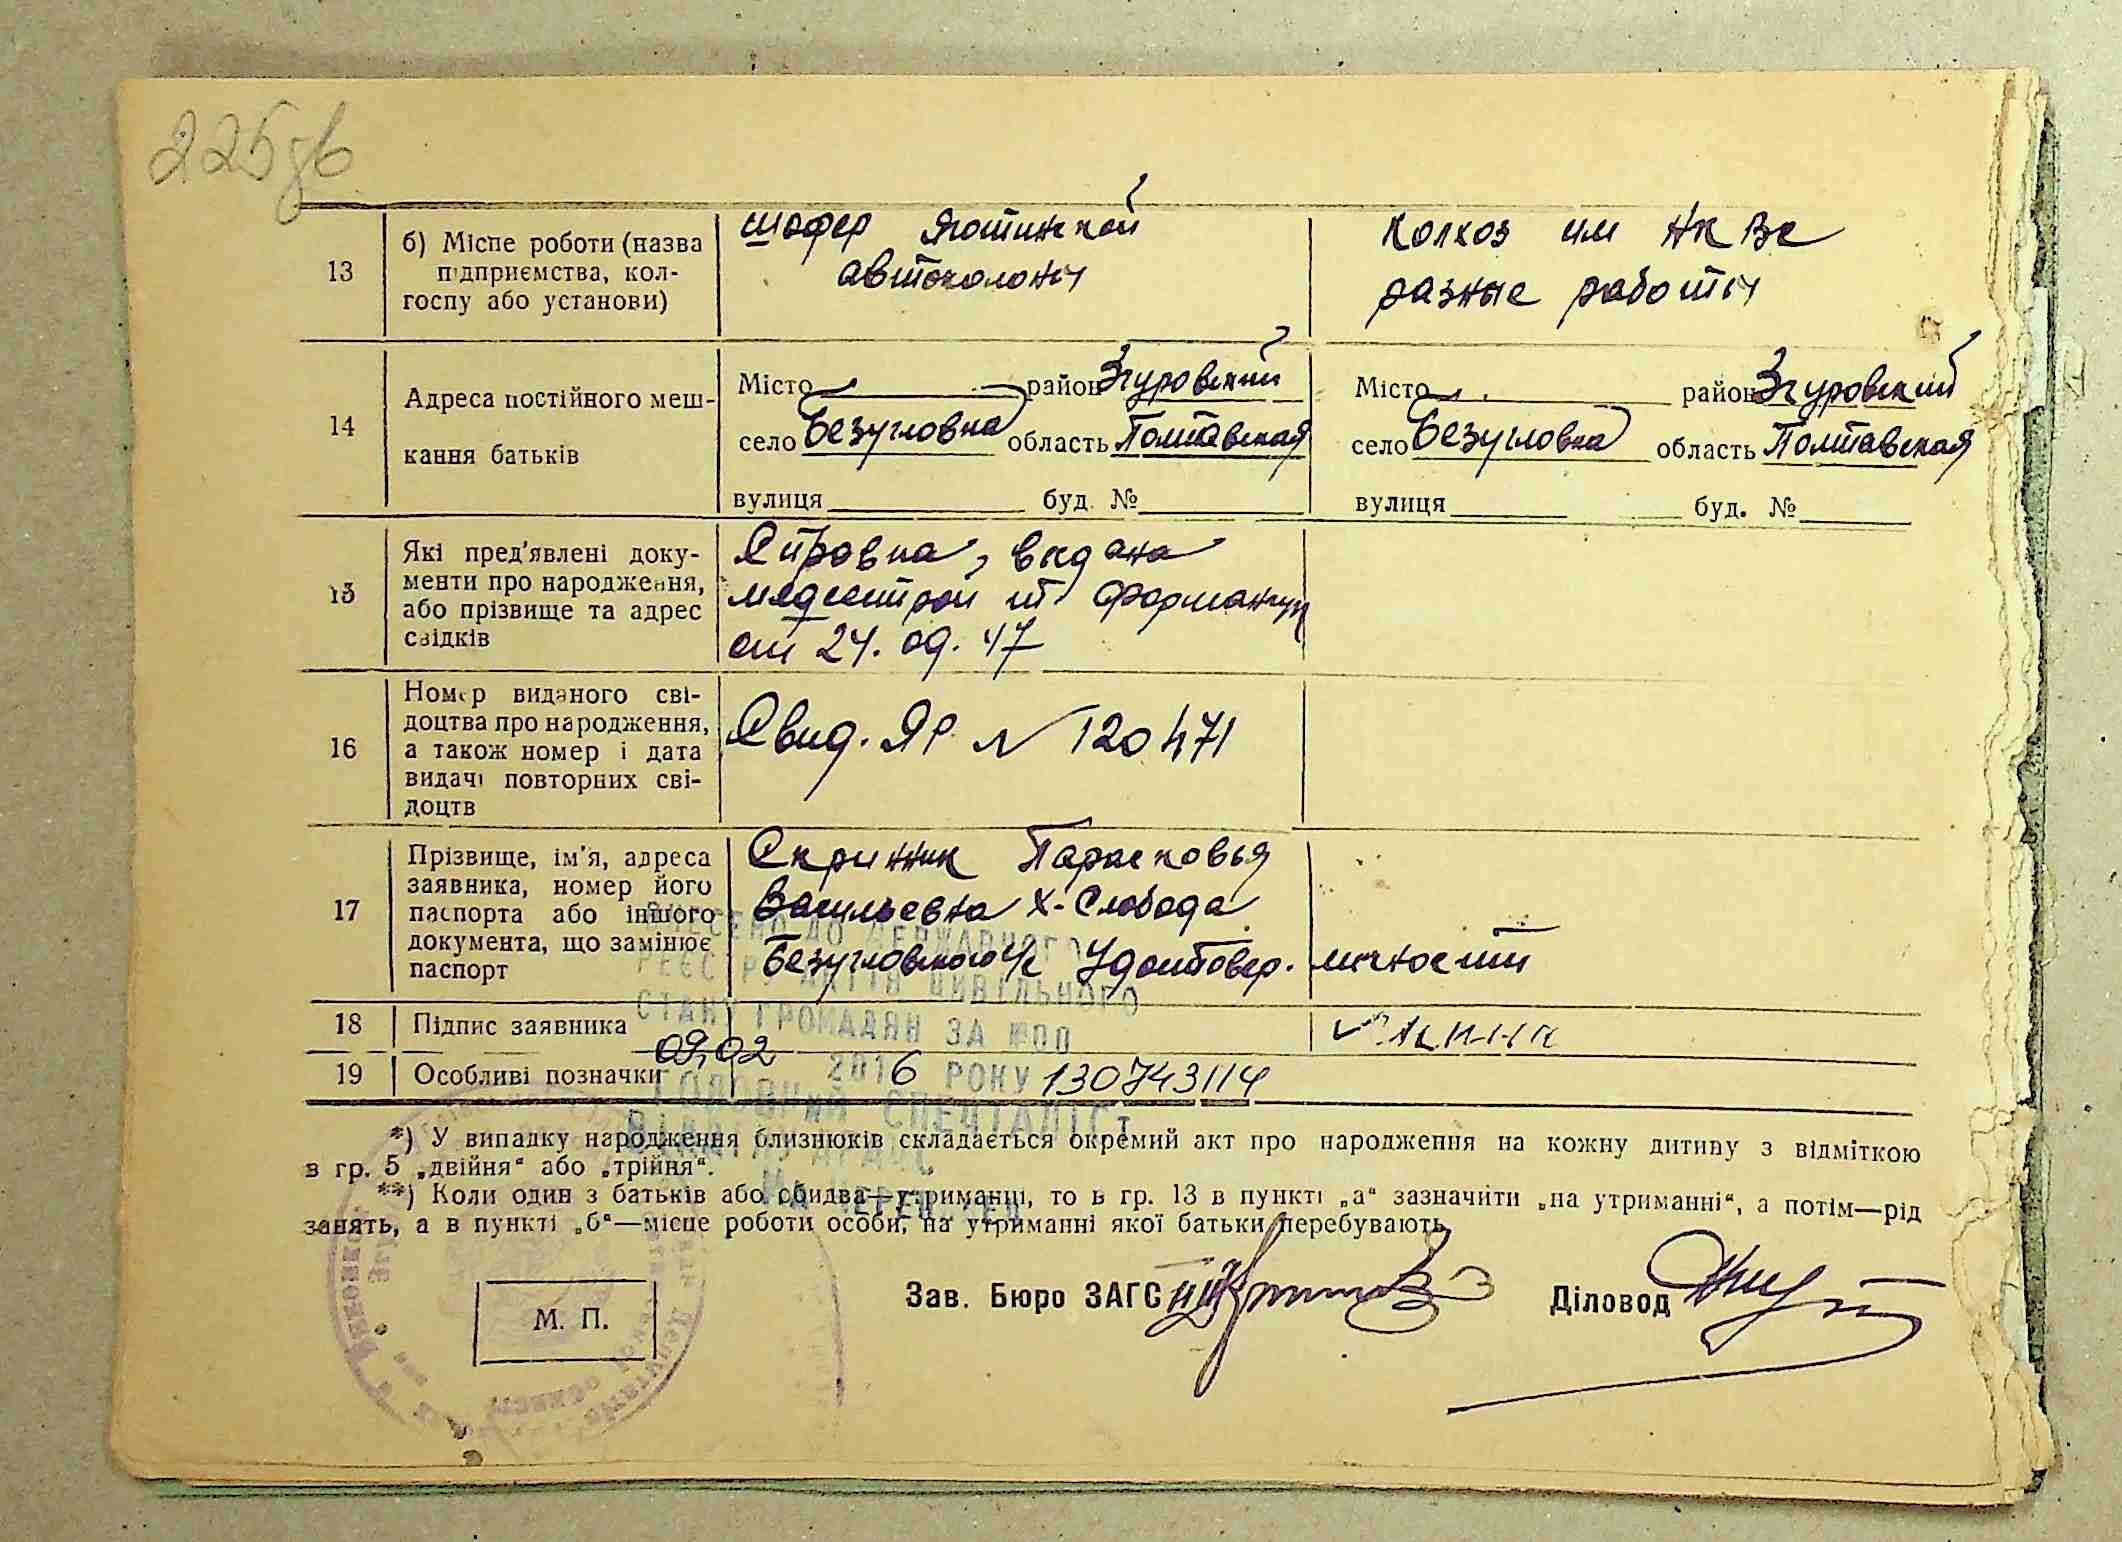 225зв
13
б) Місце роботи (назва
підприємства, кол-
госпу або установи)
шофер Яготинской
автоколоны
колхоз им НКВС
разные работы
14
Адреса постійного меш-
кання батьків
Місто район Згуровский
село Безугловка область Полтавская
вулиця буд. №
Місто район Згуровский
село Безугловка область Полтавская
вулиця буд. №
15
Які пред'явлені доку-
менти про народження,
або прізвище та адрес
свідків
Справка, выдана
медсестрой
от 24. 09. 47
16
Номер виданого сві-
доцтва про народження,
а також номер і дата
видачі повторних сві-
доцтв
Свид. ЯР № 120471
17
Прізвище, ім'я, адреса
заявника, номер його
паспорта або іншого
документа, що замінює
паспорт
Скринник Парасковья
Васильевна Х-Слобода
Безугловского с/с Удостовер. личности
18 Підпис заявника
19 Особливі позначки
ВНЕСЕНО ДО ДЕРЖАВНОГО
РЕЄСТРУ АКТІВ ЦИВІЛЬНОГО
СТАНУ ГРОМАДЯН ЗА №00
09.02 2016 РОКУ 130743114
ГОЛОВНИЙ СПЕЦІАЛІСТ
*) У випадку народження близнюків складається окремий акт про народження на кожну дитину з відміткою
в гр. 5 „двійня“ або „трійня“.
**) Коли один з батьків або обидва—утриманці, то в гр. 13 в пункті „а“ зазначити „на утриманні“, а потім—рід
занять, а в пункті „б“—місце роботи особи, на утриманні якої батьки перебувають.
М. П.
Зав. Бюро ЗАГС
Діловод